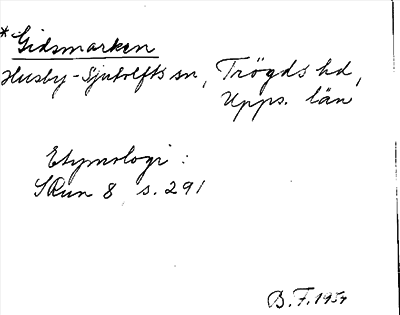 *Gidsmarken
Husby-Sjutolfts sn, Trögds hd,
Upps. län
Etymologi:
SRun 8 s. 291
B. F. 1954